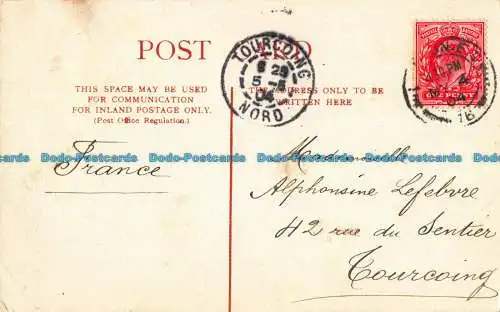 POST CARD
THIS SPACE MAY BE USED
FOR COMMUNICATION
FOR INLAND POSTAGE ONLY.
(Post Office Regulation.)
THE ADDRESS ONLY TO BE
WRITTEN HERE
TOURCOING
5
04
NORD
France
Mademoiselle
Alphonsine Lefebvre
42 rue du Sentier
Tourcoing
Dodo-Postcards Dodo-Postcards Dodo-Postcards Dodo-Postcards Dodo-Postcards